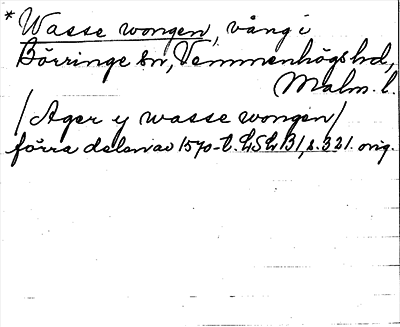 * Wasse wongen, vång i
Börringe sn, Vemmenhögs hd,
Malm. l.
/Ager y wasse wongen/
förra delen av 1570-t. LSLB1, s. 321. orig.